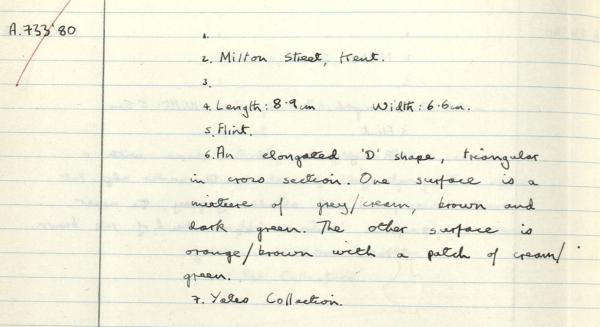 A.733'80
1.
2. Milton Street, Kent.
3.
4. Length: 8.9cm Width: 6.6cm.
5. Flint.
6. An elongated 'D' shape, triangular
in cross section. One surface is a
mixture of grey/cream, brown and
dark green. The other surface is
orange/brown with a patch of cream/
green.
7. Yates Collection.